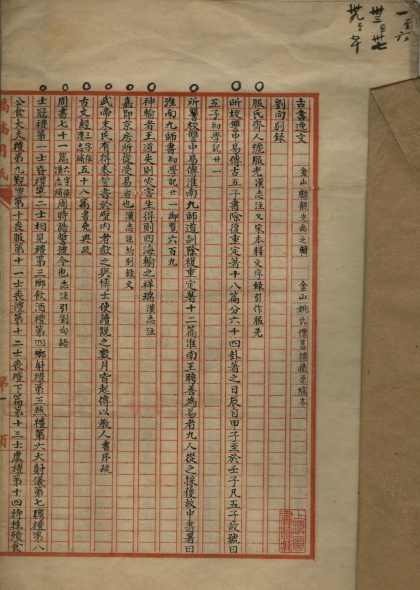 一至六
三三至卅七
卅九至卌
古書逸文　金山顧觀光尚之輯　金山姚氏懷舊樓藏原稿本
劉向別錄
服氏齊人號服光漢志注又宋本釋文序錄引作服先
所校讎中易傳古五子書除復重定著十八篇分六十四卦著之日辰自甲子至於壬子凡五子故號曰
五子初學記廿一
所校讎中易傳淮南九師道訓除復重定著十二篇淮南王聘善為易者九人從之採獲故中書署曰
淮南九師書初學記廿一御覽六百九
神輸者王道失則災害生得則四海輸之祥瑞漢志注
嘉即京房所從受易者也漢志注為別錄文
武帝末民有得泰誓書於壁內者獻之與博士使讀說之數月皆起傳以教人書序疏
古文經五十八篇
周書七十一篇周時誥誓號令也志注引劉向語
士冠禮第一士昏禮第二士相見禮第三鄉飲酒禮第四鄉射禮第五燕禮第六大射儀第七聘禮第八
公食大夫禮第九覲禮第十喪服第十一士喪禮第十二士喪禮下篇第十三士虞禮第十四特牲饋食